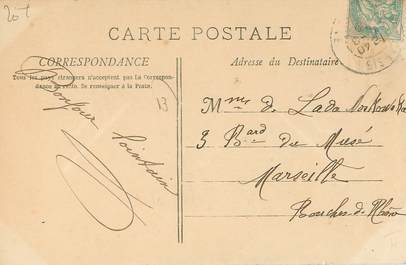 20 f
CARTE POSTALE
CORRESPONDANCE
Tous les pays étrangers n'acceptent pas la Correspon-
dance au recto. Se renseigner à la Poste.
Adresse du Destinataire
13
Bonjour
lointain
Mme de Lada
3 Bard du Musé
Marseille
Bouches du Rhône